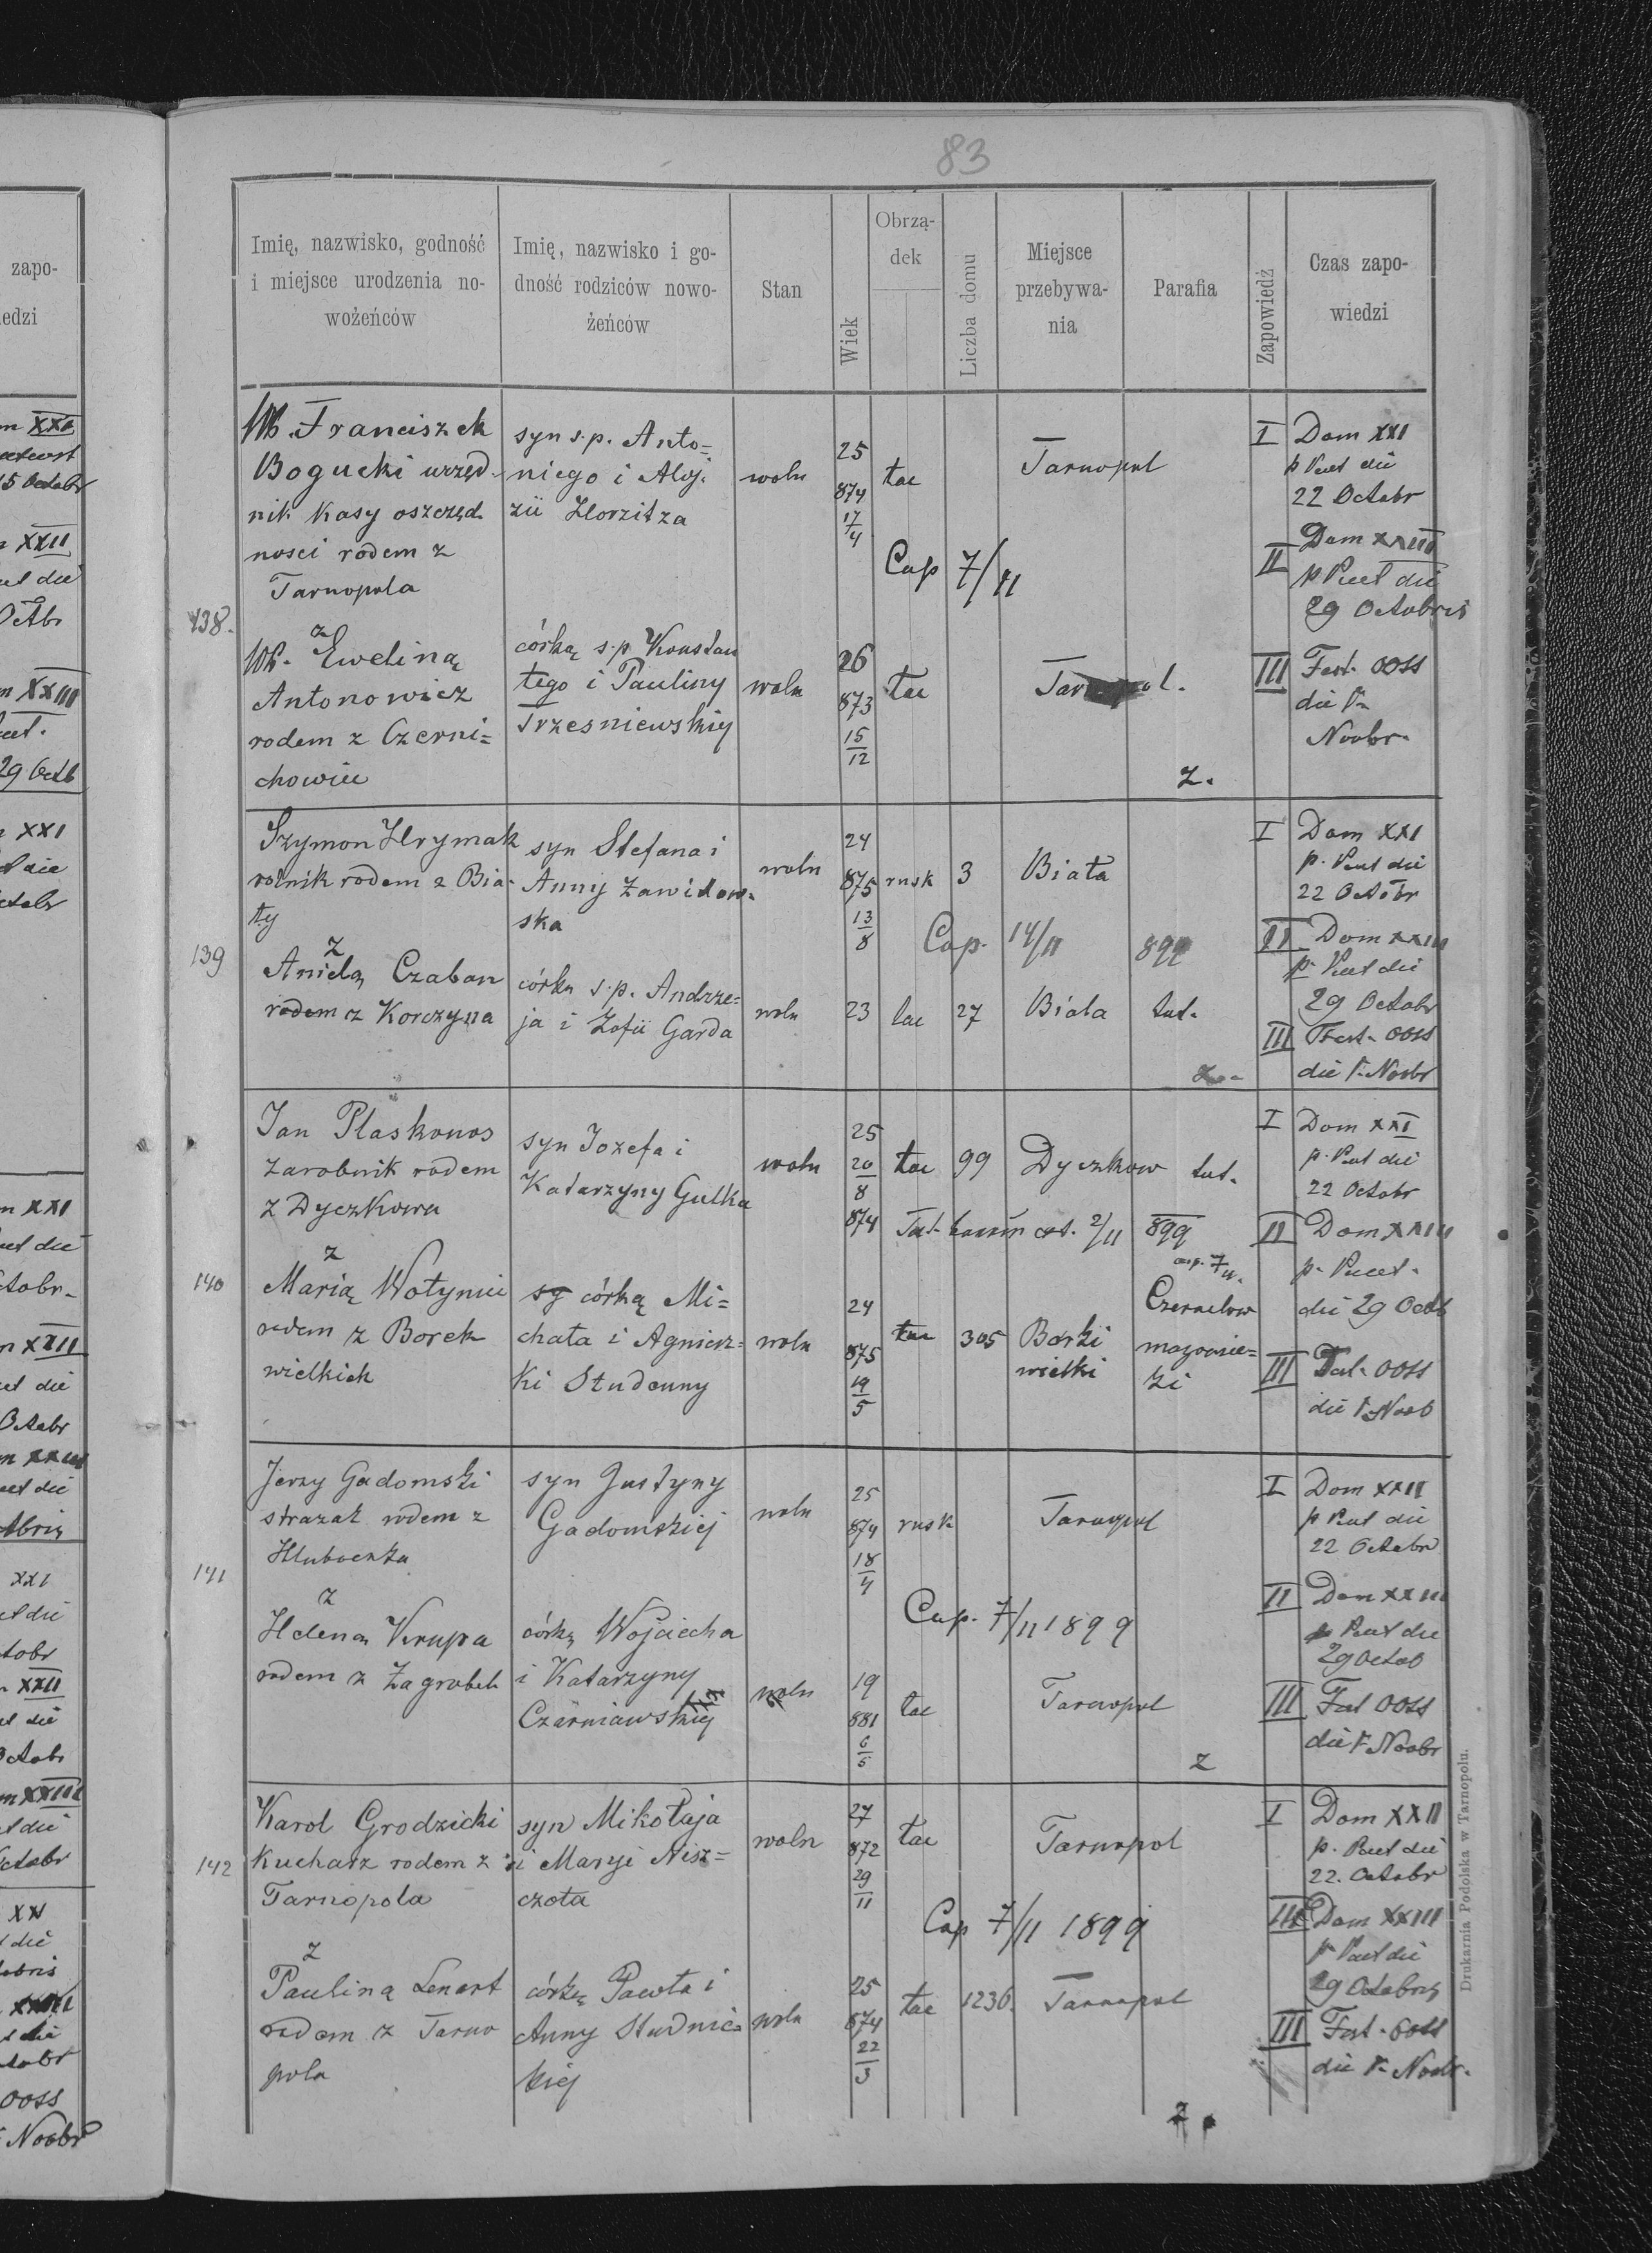 83
Imię, nazwisko, godność
i miejsce urodzenia no-
wożeńców
Imię, nazwisko i go-
dność rodziców nowo-
żeńców
Stan
Wiek
Obrzą-
dek
Liczba domu
Miejsce
przebywa-
nia
Parafia
Zapowiedź
Czas zapo-
wiedzi
138.
Franciszek
Bogucki urzęd-
nik Kasy oszczęd
ności rodem z
Tarnopola
syn s.p. Anto=
niego i Aloj.
zii Horzitza
woln
25
874
17/4
łac
Tarnopol
Cap 7/11
I Dom XXI
p Pent die
22 Octobr
II Dom XXIII
p Pent die
29 Octobris
z
Eweliną
Antonowicz
rodem z Czerni=
chowiec
córką s.p. Konstan
tego i Pauliny
Trzesniewskiej
woln
26
873
15/12
łac
III Fest. OOSS
die 1
Novbr
z.
139
Szymon Hrymak
rolnik rodem z Bia-
ły
syn Stefana i
Anny Zawidow-
ska
woln
24
875
13/8
rusk
3
Biała
Cap. 14/11 899
I Dom XXI
p. Pent die
22 Octobr
II Dom XXIII
p. Pent die
29 Octobr
z
Anielą Czaban
rodem z Korczyna
córka s.p. Andrze=
ja i Zofii Garda
woln
23
lac
27
Biala
tut.
III Fest. OOSS
die 1. Novbr
140
Jan Płaskonos
zarobnik rodem
z Dyczkowa
syn Jozefa i
Katarzyny Gulka
woln
25
20/8
874
łac
99
Dyczkow
tut.
2/11 899
cap. 7/11.
I Dom XXI
p. Pent die
22 Octobr
II Dom XXIII
p. Pent.
die 29 Octb
z
Marią Wołyniec
rodem z Borek
wielkich
córką Mi=
chała i Agniesz=
ki Studenny
woln
24
875
19/5
łac
305
Borki
wielki
Czernelow
mazowie=
ki
III Fest. OOSS
die 1 Novb
141
Jerzy Gadomski
strażak rodem z
Hluboczka
syn Justyny
Gadomskiej
woln
25
874
18/4
rusk
Tarnopol
Cap. 7/11 1899
I Dom XXII
p Pent die
22 Octobr
II Dom XXIII
p Pent die
29 Octob
z
Heleną Krupa
rodem z Zagrobeli
córką Wojciecha
i Katarzyny
Czarniawskiej
woln
19
881
6/5
łac
Tarnopol
z
III Fest OOSS
die 1 Novbr
142
Karol Grodzicki
Kucharz rodem z
Tarnopola
syn Mikołaja
i Maryi Nisz=
czota
woln
27
872
29/11
łac
Tarnopol
Cap 7/11 1899
I Dom XXII
p. Pent die
22. Octobr
III Dom XXIII
p Pent die
29 Octobris
z
Pauliną Lenart
rodem z Tarno
pola
córką Pawła i
Anny Studnic=
kiej
woln
25
874
22/3
łac
1236.
Tarnopol
III Fest. OOSS
die 1. Novbr.
Drukarnia Podolska w Tarnopolu.